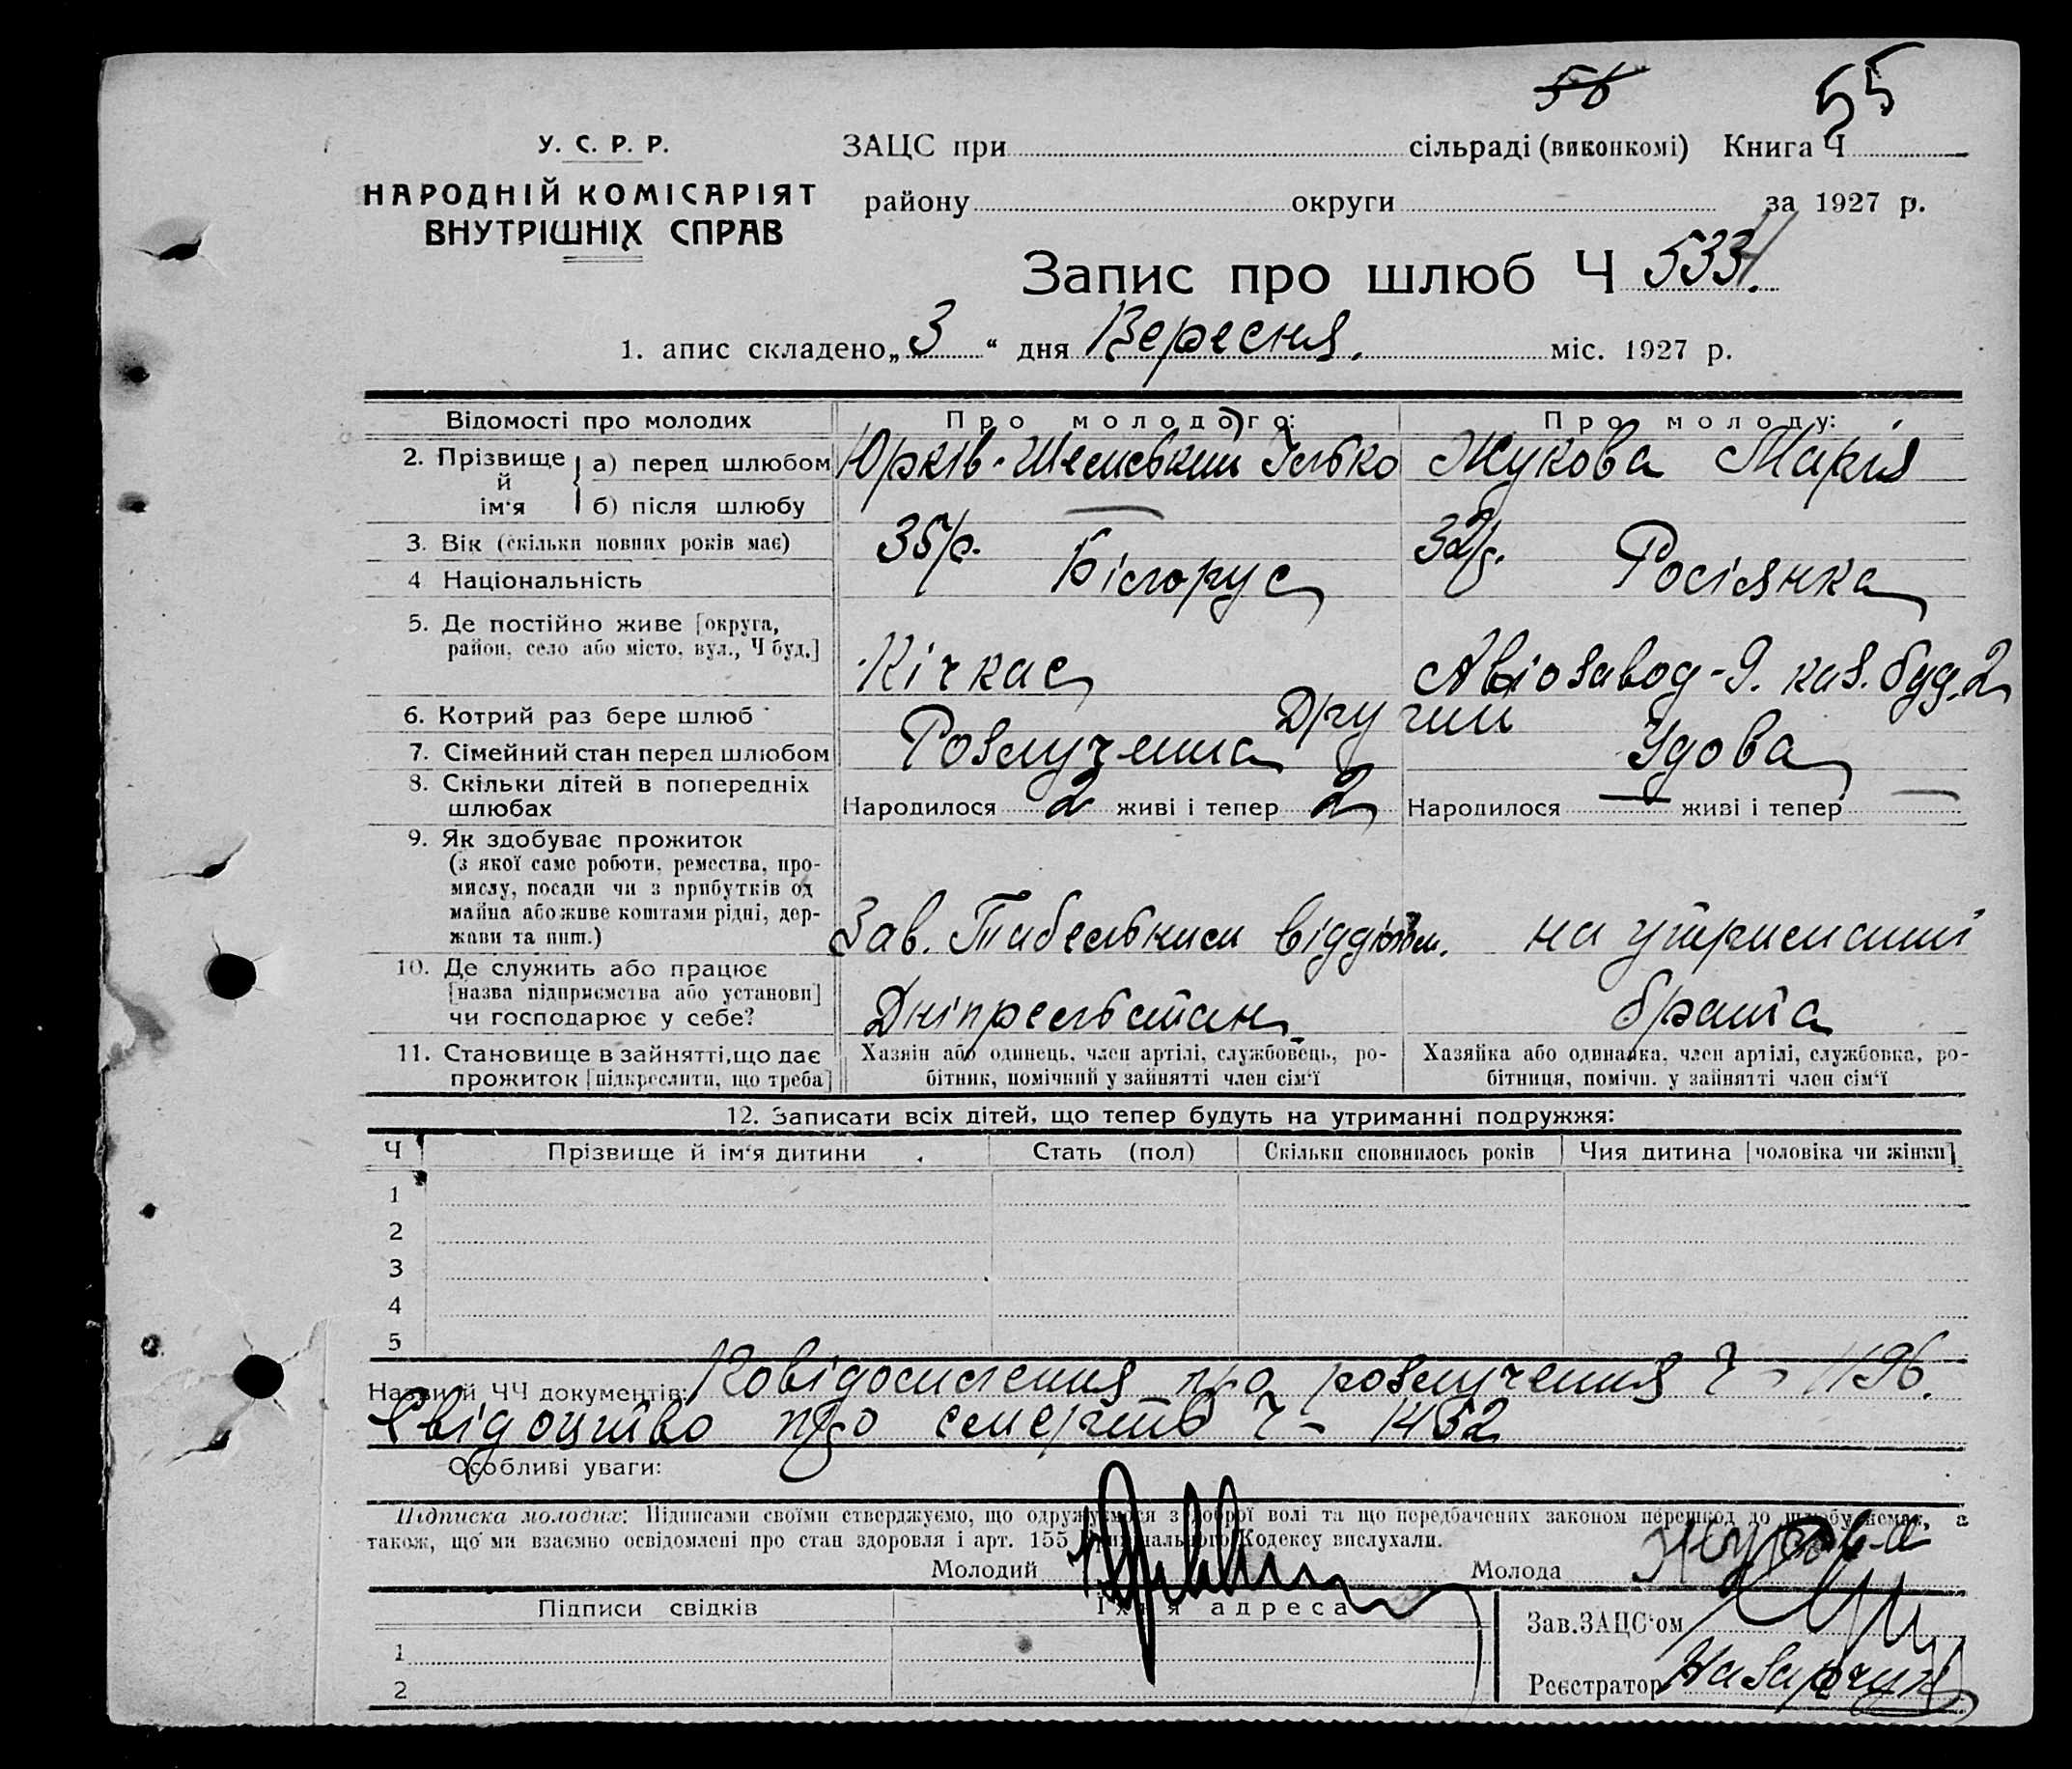 56 55
У. С. Р. Р.
НАРОДНІЙ КОМІСАРІЯТ
ВНУТРІШНІХ СПРАВ
ЗАЦС при сільраді (виконкомі) Книга Ч
району округи за 1927 р.
Запис про шлюб Ч 533
1. апис складено „3“ дня Вересня. міс. 1927 р.
Відомості про молодих Про молодого: Про молоду:
2. Прізвище й ім'я а) перед шлюбом Юрків- Ілько Жукова Марія
б) після шлюбу —
3. Вік (скільки повних років має) 35 р. 32 р.
4 Національність Білорус Росіянка
5. Де постійно живе [округа,
район, село або місто, вул., Ч буд.] Кічкас Авіозавод-9. каз. буд. 2
6. Котрий раз бере шлюб Другий
7. Сімейний стан перед шлюбом Розлучена Удова
8. Скільки дітей в попередніх
шлюбах Народилося 2 живі і тепер 2 Народилося — живі і тепер —
9. Як здобуває прожиток
(з якої саме роботи, ремества, про-
мислу, посади чи з прибутків од
майна або живе коштами рідні, дер-
жави та инш.) Зав. Табельним відділом. на утриманні
10. Де служить або працює
[назва підприємства або установи]
чи господарює у себе? Дніпрельстан брата
11. Становище в зайнятті, що дає
прожиток [підкреслити, що треба]
Хазяїн або одинець, член артілі, службовець, ро-
бітник, помічний у зайнятті член сім'ї
Хазяйка або одиначка, член артілі, службовка, ро-
бітниця, помічн. у зайнятті член сім'ї
12. Записати всіх дітей, що тепер будуть на утриманні подружжя:
Ч Прізвище й ім'я дитини Стать (пол) Скільки сповнилось років Чия дитина [чоловіка чи жінки]
1
2
3
4
5
Назви й ЧЧ документів: Повідомлення про розлучення Ч - 1196.
Свідоцтво про смерть Ч - 1452
Особливі уваги:
Підписка молодих: Підписами своїми стверджуємо, що одружуємося з доброї волі та що передбачених законом перешкод до шлюбу немає, а
також, що ми взаємно освідомлені про стан здоровля і арт. 155 Кримінального Кодексу вислухали.
Молодий Молода Жукова
Підписи свідків Їхня адреса
Зав. ЗАЦС'ом
1
Реєстратор Назарчук
2